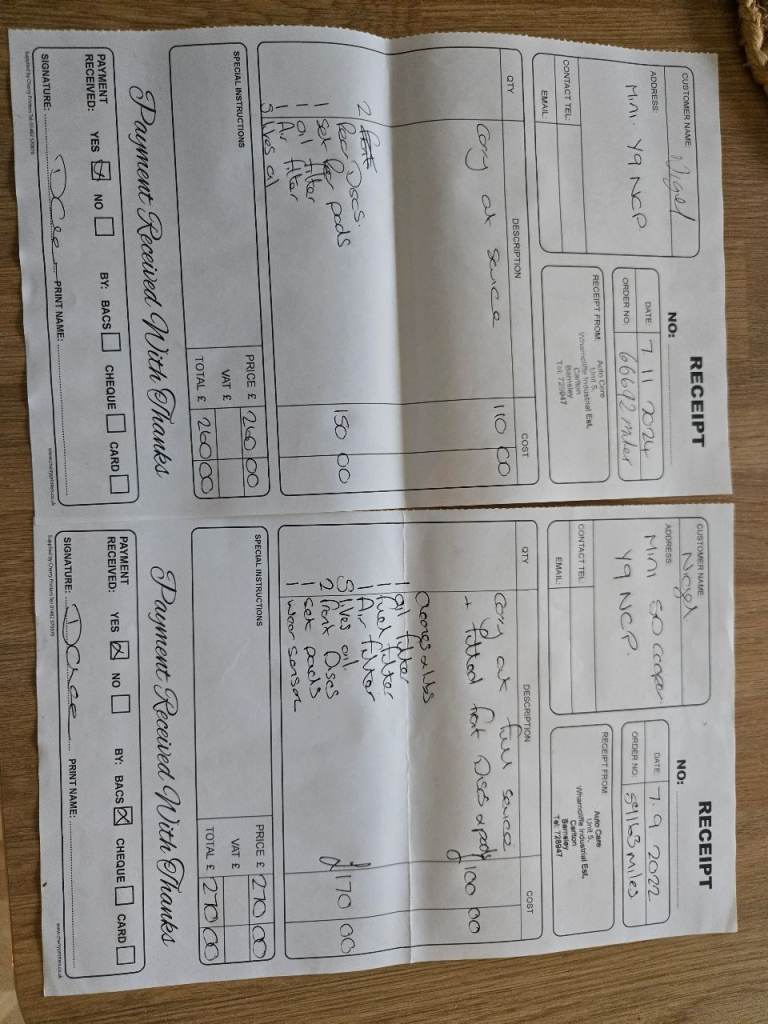 RECEIPT
NO:
CUSTOMER NAME: Nigel
ADDRESS:
Mini. Y9 NCP
CONTACT TEL:
EMAIL:
DATE: 7 11 2024
ORDER NO: 66692 miles
RECEIPT FROM:
Auto Care
Unit 5,
Wharncliffe Industrial Est.
Carlton
Barnsley
Tel: 728947
QTY DESCRIPTION COST
Carry out service 110 00
2 Rear Discs.
1 set Rear pads 150 00
1 oil filter
1 Air filter
5 litres oil
SPECIAL INSTRUCTIONS
PRICE £ 260 00
VAT £
TOTAL £ 260 00
Payment Received With Thanks
PAYMENT RECEIVED: YES NO BY: BACS CHEQUE CARD
SIGNATURE: PRINT NAME:
Supplied by Cherry Printers Tel: 01482 375870
www.cherryprinters.co.uk
RECEIPT
NO:
CUSTOMER NAME: Niegh
ADDRESS:
Mini SD Cooper
Y9 NCP.
CONTACT TEL:
EMAIL:
DATE: 7. 9 2022
ORDER NO: 59163 miles
RECEIPT FROM:
Auto Care
Unit 5,
Wharncliffe Industrial Est.
Carlton
Barnsley
Tel: 728947
QTY DESCRIPTION COST
Carry out full service
+ fitted front Discs & pads £100 00
1 oil filter
1 fuel filter
1 Air filter
5 litres oil
2 front Discs £170 00
1 set pads
1 wear sensor
SPECIAL INSTRUCTIONS
PRICE £ 270 00
VAT £
TOTAL £ 270 00
Payment Received With Thanks
PAYMENT RECEIVED: YES NO BY: BACS CHEQUE CARD
SIGNATURE: PRINT NAME:
Supplied by Cherry Printers Tel: 01482 375870
www.cherryprinters.co.uk